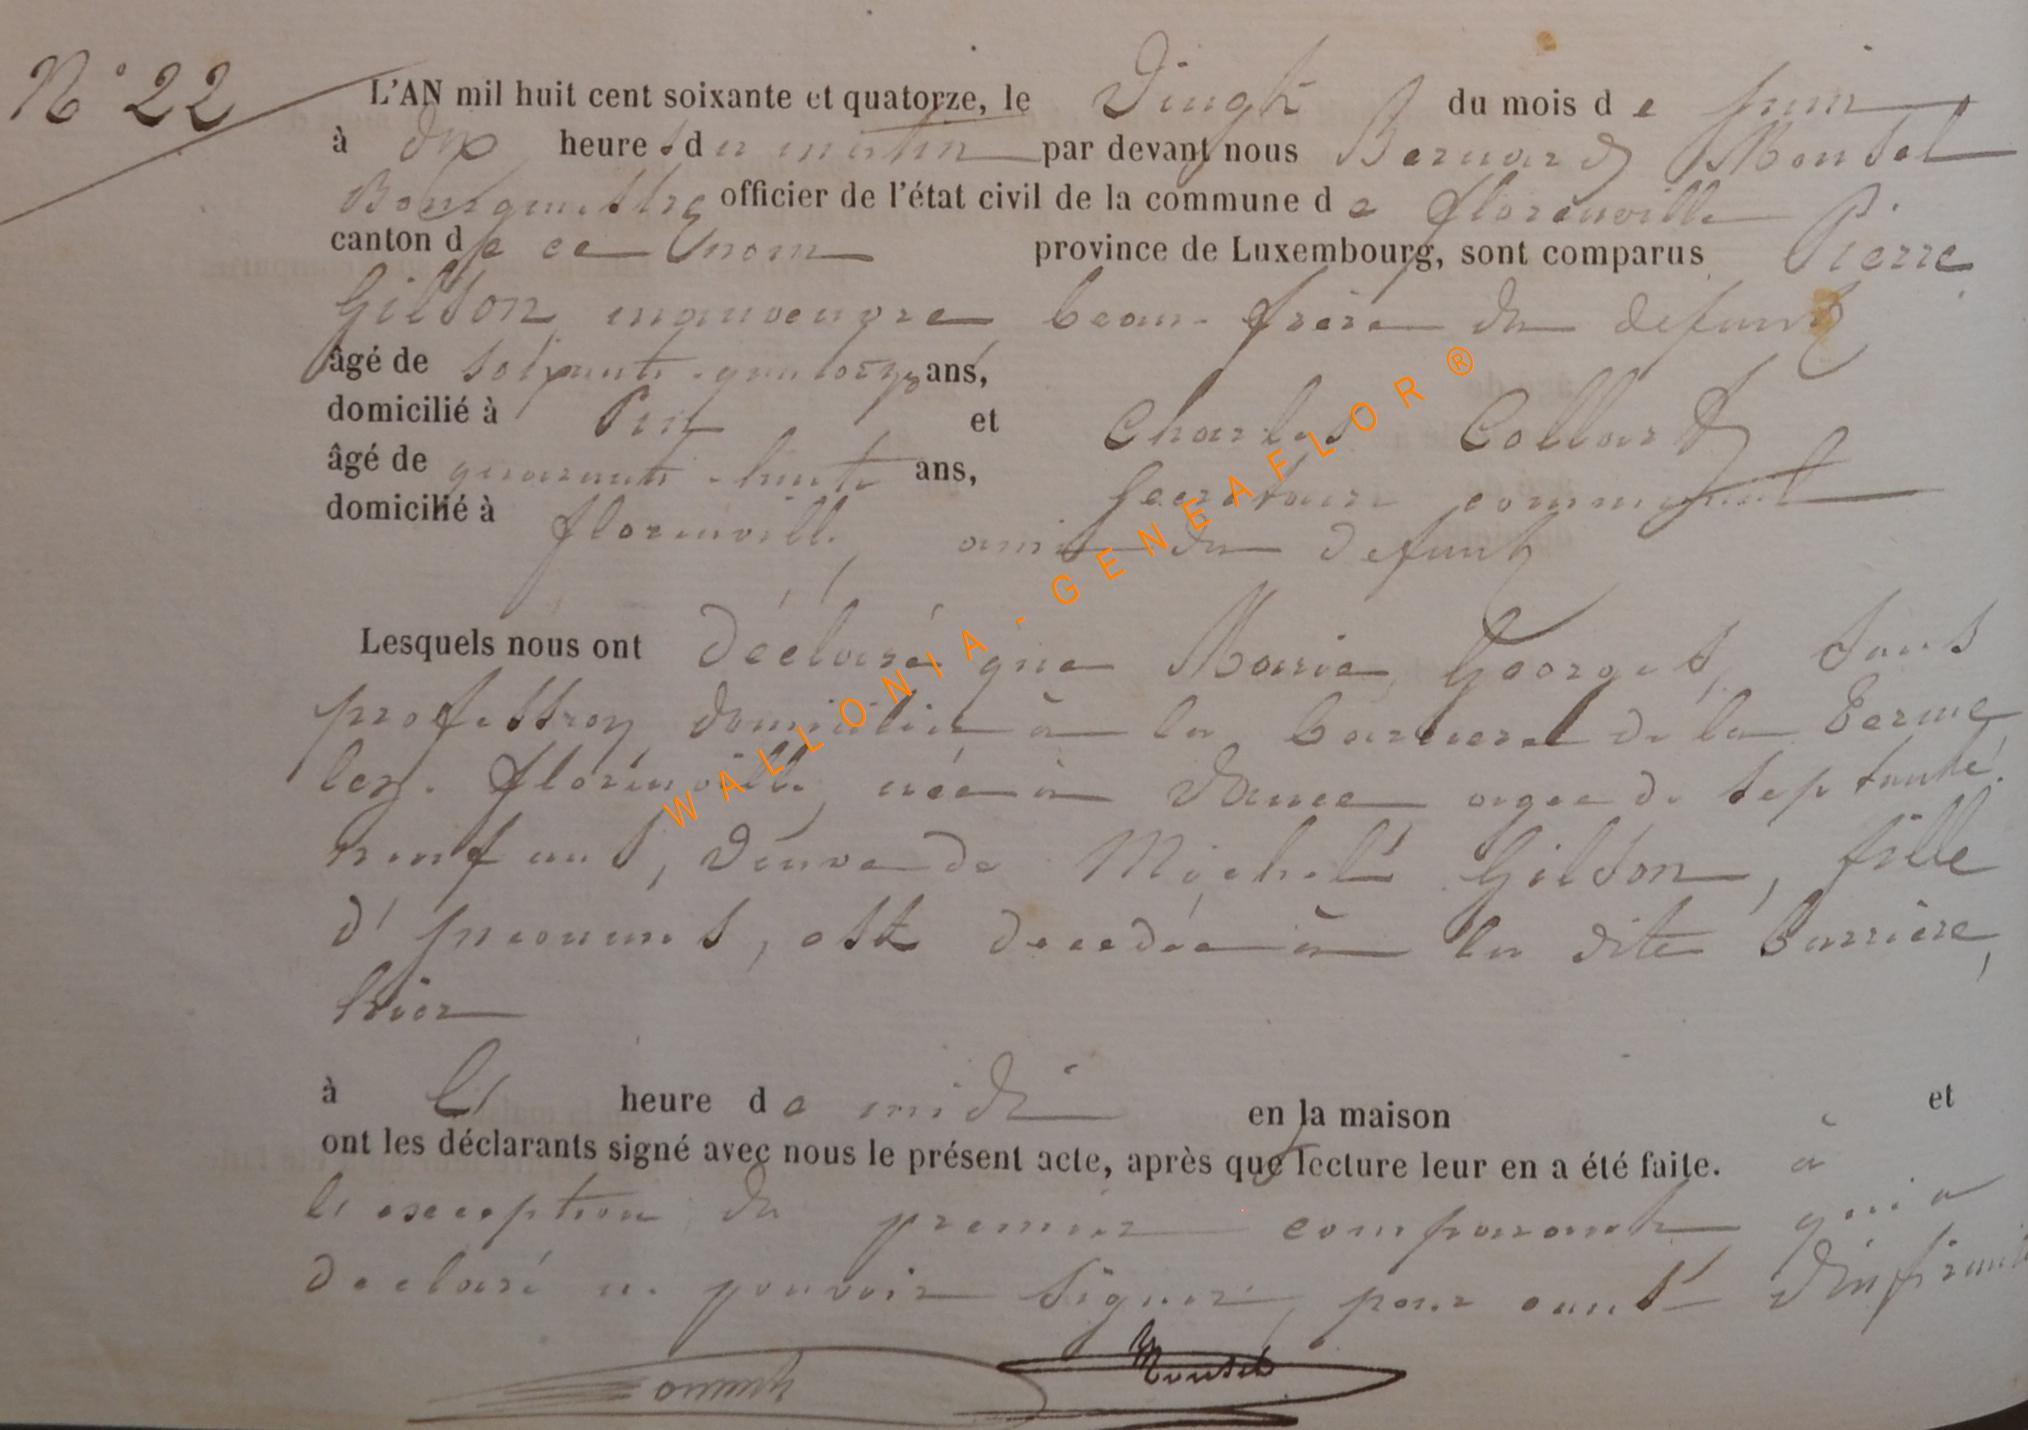 N° 22
L'AN mil huit cent soixante et quatorze, le Vingt du mois de Juin
à dix heures du matin par devant nous Bernard Monsel
Bourgmestre officier de l'état civil de la commune de florenville
canton de ce nom province de Luxembourg, sont comparus Pierre
Gilson, manoeuvre beau-frère du defunt
âgé de soixante-quatorze ans,
domicilié à Pin et Charles Collard
âgé de quarante-huit ans, Secretaire communal
domicilié à florenville, ami du defunt
Lesquels nous ont déclaré que Marie Georges, sans
profession domiciliée à la barriere de la
lez-florenville, née à agée de septante
neuf ans, veuve de Michel Gilson, fille
d' , est decedée à la dite barrière,
hier
à l' heure de midi en la maison et
ont les déclarants signé avec nous le présent acte, après que lecture leur en a été faite. à
l'exception du premier comparant qui a
declaré ne pouvoir signer, pour cause d'infirmité
Monsel
WALLONIA-GENEAFLOR®